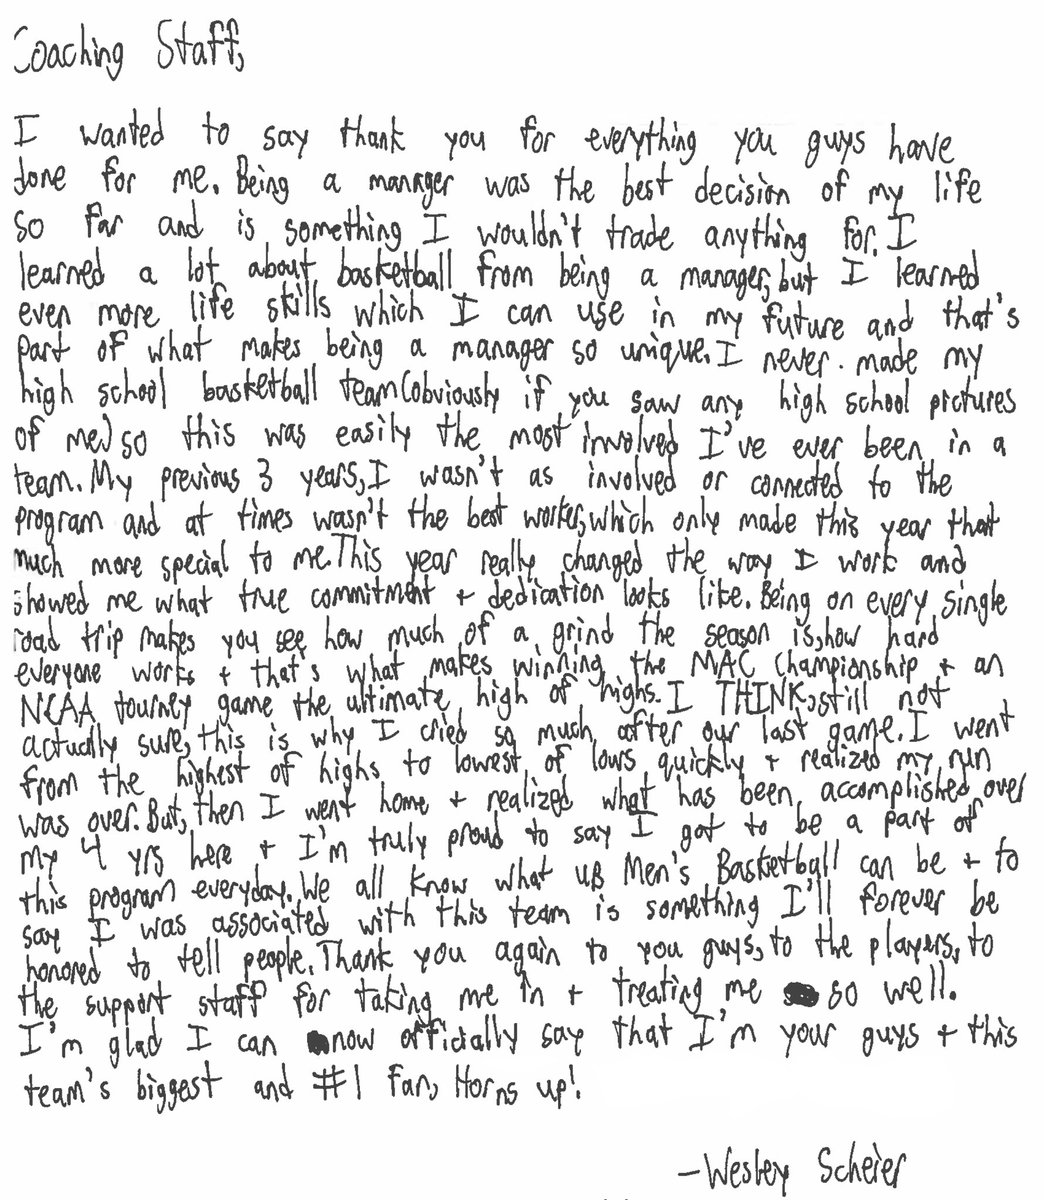 Coaching Staff,
I wanted to say thank you for everything you guys have
done for me. Being a manager was the best decision of my life
so far and is something I wouldn't trade anything for. I
learned a lot about basketball from being a manager, but I learned
even more life skills which I can use in my future and that's
part of what makes being a manager so unique. I never made my
high school basketball team (obviously if you saw any high school pictures
of me) so this was easily the most involved I've ever been in a
team. My previous 3 years, I wasn't as involved or connected to the
program and at times wasn't the best worker, which only made this year that
much more special to me. This year really changed the way I work and
showed me what true commitment + dedication looks like. Being on every single
road trip makes you see how much of a grind the season is, how hard
everyone works + that's what makes winning the MAC Championship + an
NCAA tourney game the ultimate high of highs. I THINK, still not
actually sure, this is why I cried so much after our last game. I went
from the highest of highs to lowest of lows quickly + realized my run
was over. But, then I went home + realized what has been accomplished over
my 4 yrs here + I'm truly proud to say I got to be a part of
this program everyday. We all know what UB Men's Basketball can be + to
say I was associated with this team is something I'll forever be
honored to tell people. Thank you again to you guys, to the players, to
the support staff for taking me in + treating me so well.
I'm glad I can now officially say that I'm your guys + this
team's biggest and #1 fan, Horns up!
-Wesley Scheier